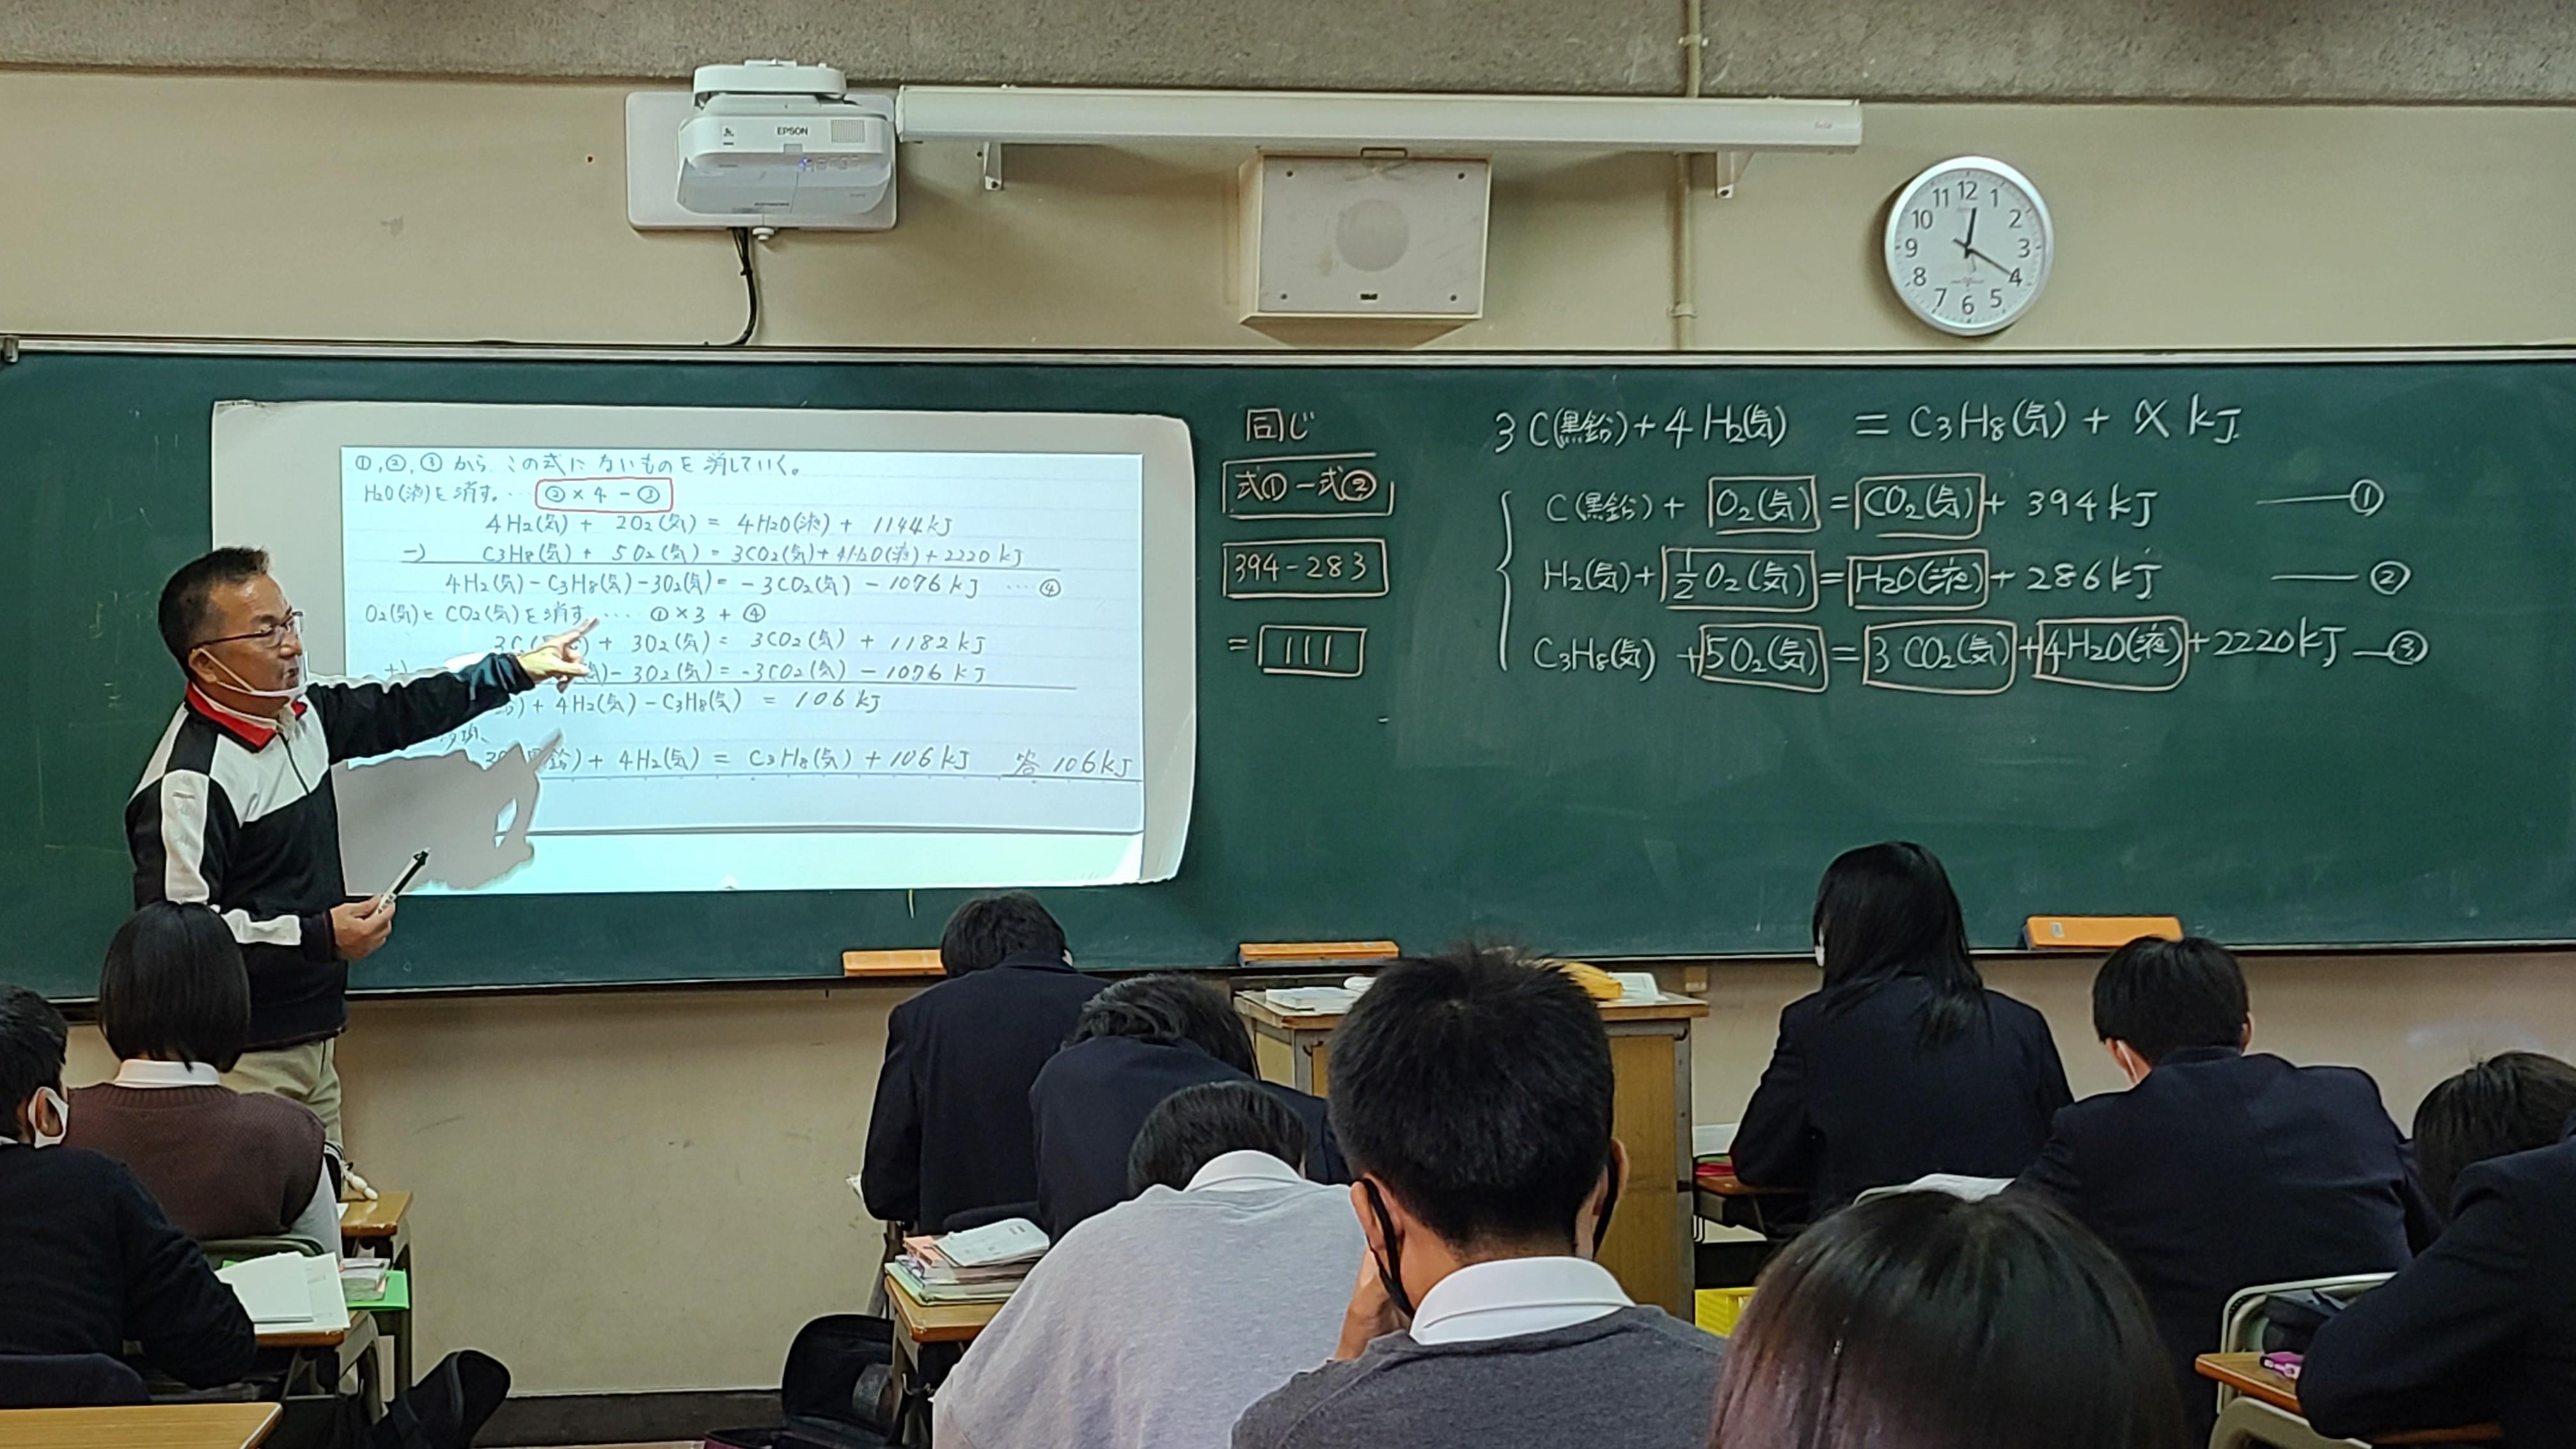 EPSON
11 12 1
10 2
9 3
8 4
7 6 5
①,②,③から この式にないものを消していく。
H2O(液)を消す。… ②×4-③
4H2(気) + 2O2(気) = 4H2O(液) + 1144kJ
-) C3H8(気) + 5O2(気) = 3CO2(気)+4H2O(液)+2220kJ
4H2(気)-C3H8(気)-3O2(気)= -3CO2(気) - 1076kJ …④
O2(気)とCO2(気)を消す。… ①×3+④
3C( ) + 3O2(気) = 3CO2(気) + 1182kJ
+) )-3O2(気) = -3CO2(気) - 1076kJ
)+4H2(気)-C3H8(気) = 106kJ
3C(黒鉛)+ 4H2(気) = C3H8(気) +106kJ 答 106kJ
同じ
式①-式②
394-283
= 111
3C(黒鉛)+4H2(気) = C3H8(気) + x kJ
C(黒鉛)+ O2(気) = CO2(気) + 394kJ ―①
H2(気)+ 1/2 O2(気) = H2O(液) + 286kJ ―②
C3H8(気) +5O2(気) = 3CO2(気)+4H2O(液)+2220kJ ―③